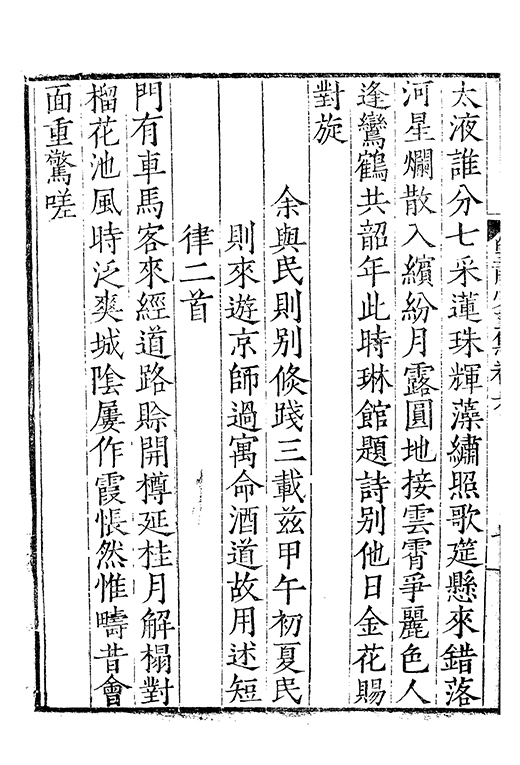 太液誰分七采蓮珠輝藻繡照歌筵懸來錯落
河星爛散入繽紛月露圓地接雲霄爭麗色人
逢鸞鶴共韶年此時琳館題詩別他日金花賜
對旋
余與民則别倐踐三載兹甲午初夏民
則來遊京師過寓命酒道故用述短
律二首
門有車馬客來經道路賖開樽延桂月解榻對
榴花池風時泛爽城陰屢作霞悵然惟疇昔會
面重驚嗟